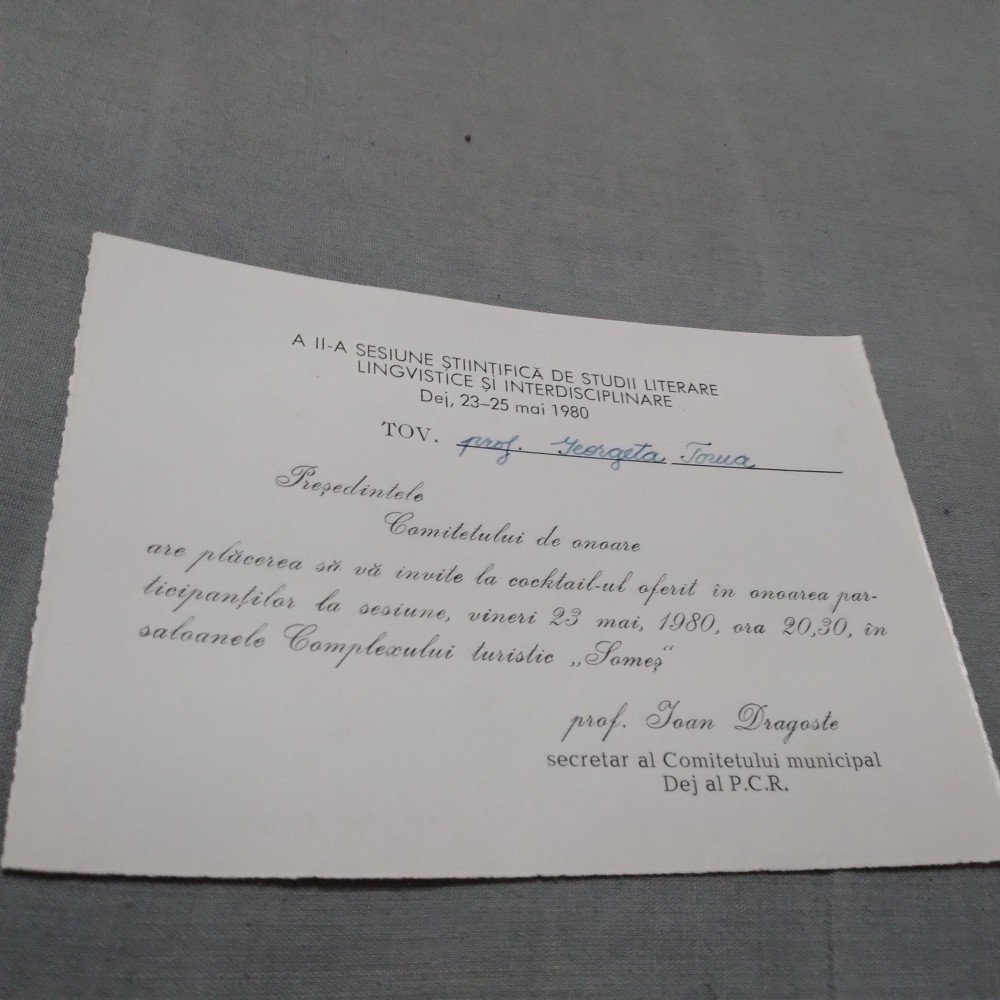 A II-A SESIUNE ȘTIINȚIFICĂ DE STUDII LITERARE
LINGVISTICE ȘI INTERDISCIPLINARE
Dej, 23–25 mai 1980
TOV. prof. Georgeta
Președintele
Comitetului de onoare
are plăcerea să vă invite la cocktail-ul oferit în onoarea par-
ticipanților la sesiune, vineri 23 mai, 1980, ora 20,30, în
saloanele Complexului turistic „Someș“
prof. Ioan Dragoste
secretar al Comitetului municipal
Dej al P.C.R.